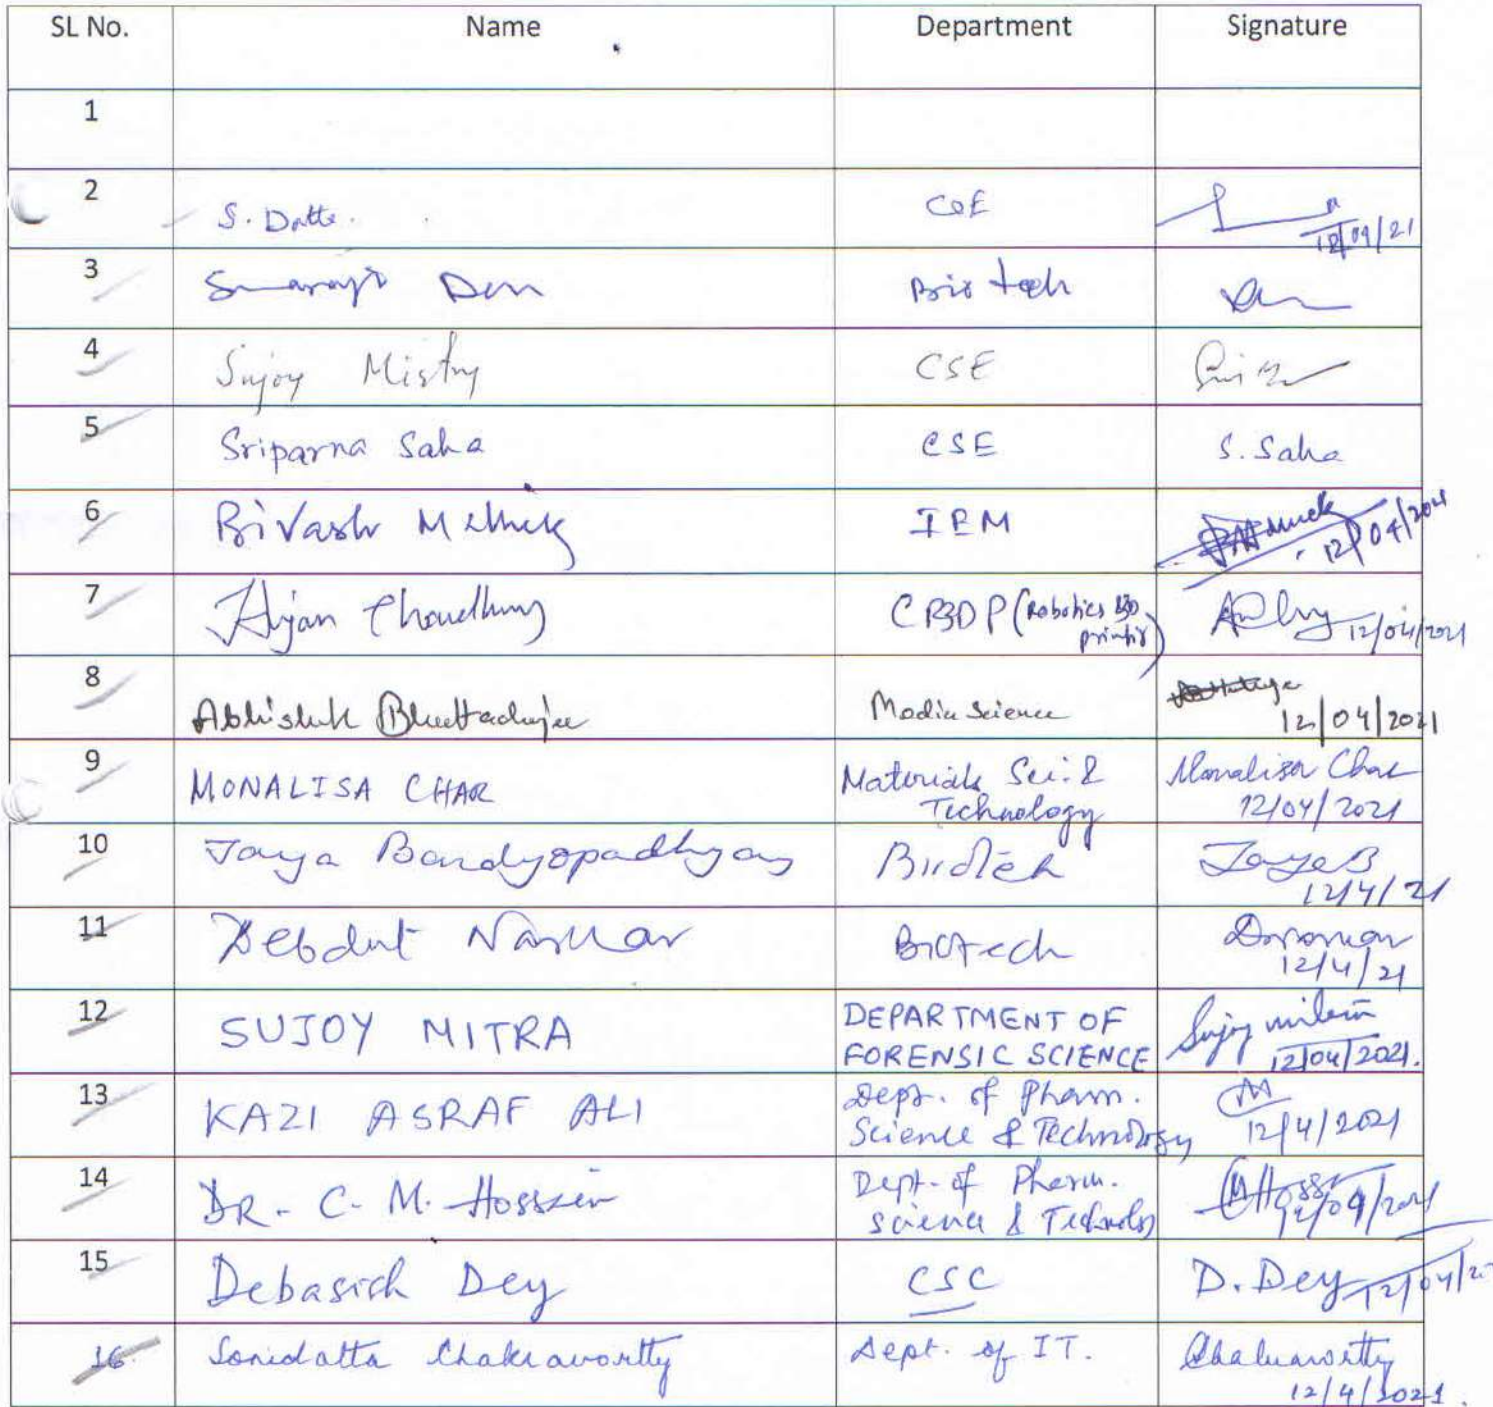 SL No. Name Department Signature
1
2 S. Datta. CSE 12/04/21
3 Den Biotech
4 Sujoy Mistry CSE
5 Sriparna Saha CSE S. Saha
6 Bivash Mallick IEM 12/04/2021
7 Arjan Choudhury CR3DP (Robotics & 3D 12/04/2021
printing)
8 Abhishek Bhattacharjee Media Science 12/04/2021
9 MONALISA CHAR Materials Sci. & Monalisa Char
Technology 12/04/2021
10 Jaya Bandyopadhyay Biotech Jaya B
12/4/21
11 Debdut Naskar Biotech
12/4/21
12 SUJOY MITRA DEPARTMENT OF Sujoy mitra
FORENSIC SCIENCE 12/04/2021.
13 KAZI ASRAF ALI Dept. of Pharm.
Science & Technology 12/4/2021
14 DR. C. M. Hossain Dept. of Pharm.
Science & Technology 12/04/2021
15 Debasish Dey CSC D. Dey 12/04/2
16. Sonidatta Chakravortty Dept. of IT. Chakravortty
12/4/2021.